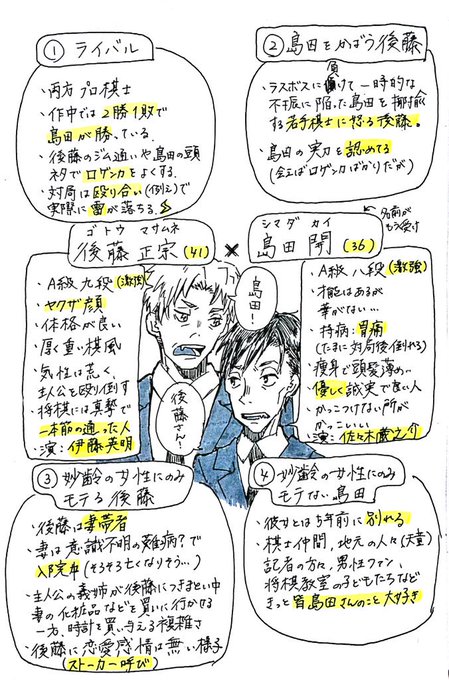 ① ライバル
・両方プロ棋士
・作中では2勝1敗で
島田が勝っている。
・後藤のジム通いや島田の頭
ネタでロゲンカをよくする。
・対局は殴り合い(例え)で
実際に雷が落ちる。
② 島田をかばう後藤
・ラスボスに負けて一時的な
不振に陥った島田を揶揄
する若手棋士に怒る後藤。
・島田の実力を認めてる
(会えばロゲンカばかりだが)
ゴトウ マサムネ
後藤 正宗 (41)
×
シマダ カイ
島田 開 (36)
名前が
もう受け
・A級 九段 (激強)
・ヤクザ顔
・体格が良い
・厚く重い棋風
・気性は荒く、
主人公を殴り倒す
・将棋には真摯で
一本筋の通った人
・演:伊藤英明
島田!
後藤さん!
・A級 八段 (激強)
・才能はあるが
華がない…
・持病:胃痛
(たまに対局後倒れる)
・痩身で頭髪薄め…
・優しく誠実で良い人
・かっこつけない所が
かっこいい
・演:佐々木蔵之介
③ 妙齢の女性にのみ
モテる後藤
・後藤は妻帯者
・妻は意識不明の難病?で
入院中(そろそろ亡くなりそう…)
・主人公の義姉が後藤につきまとい中
妻の化粧品などを買いに行かせる
一方、時計を買い与える複雑さ
・後藤に恋愛感情は無い様子
(ストーカー呼び)
④ 妙齢の女性にのみ
モテない島田
・彼女とは5年前に別れる
・棋士仲間、地元の人々(天童)
記者の方々、男性ファン、
将棋教室の子どもたちなど
きっと皆島田さんのこと大好き